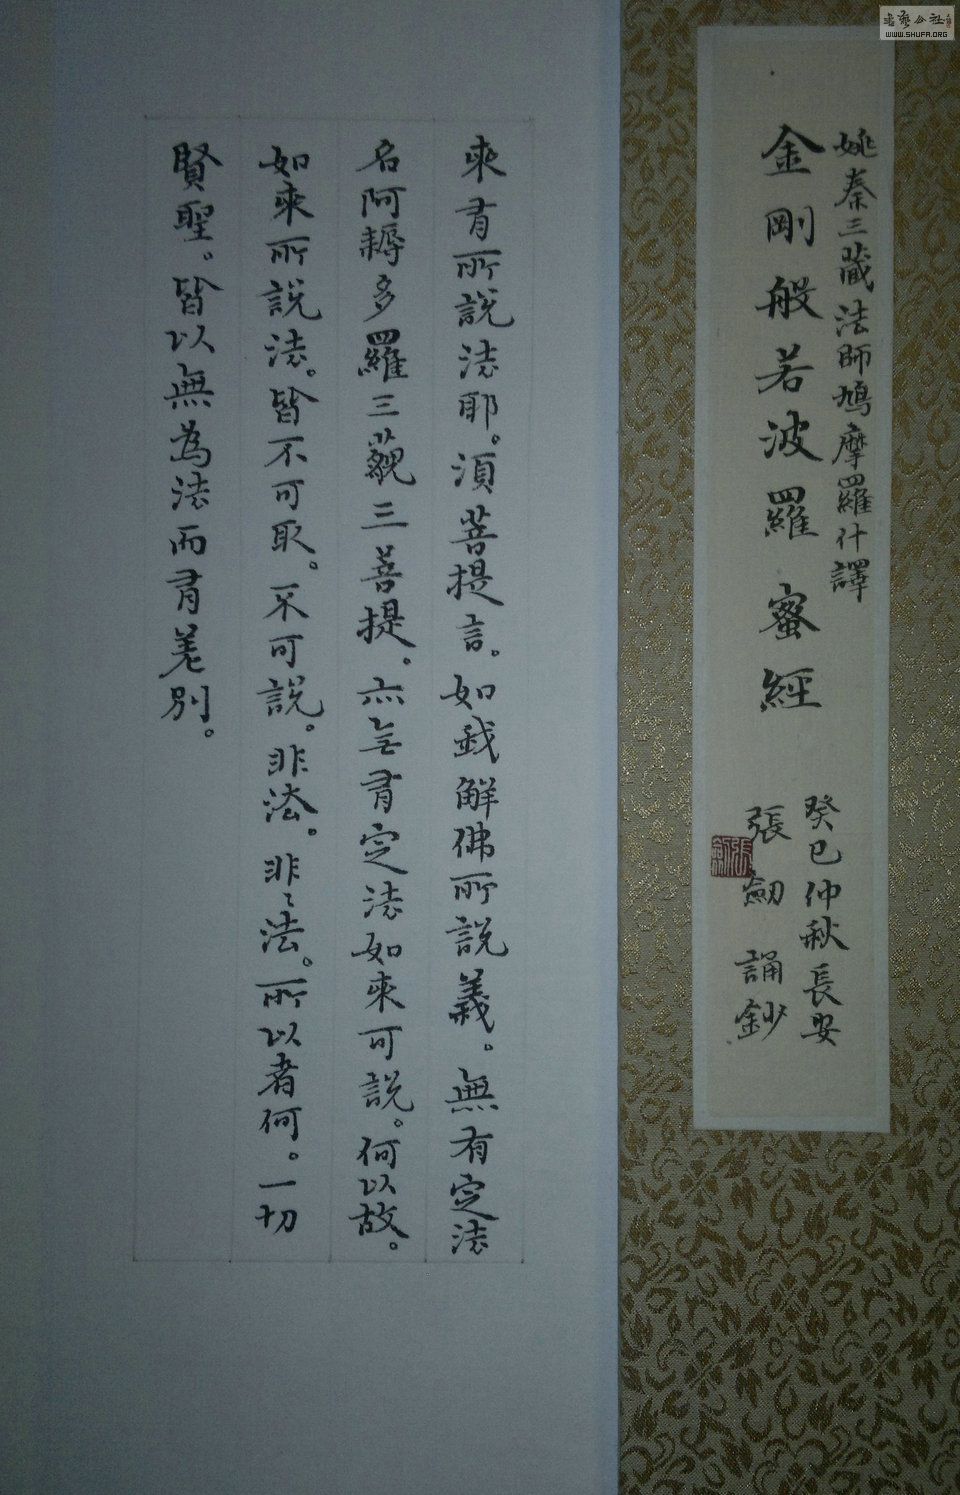 書藝公社
WWW.SHUFA.ORG
姚秦三藏法師鳩摩羅什譯
金剛般若波羅蜜經
癸巳仲秋長安
張劒誦鈔
來有所說法耶。須菩提言。如我解佛所說義。無有定法
名阿耨多羅三藐三菩提。亦无有定法如來可說。何以故。
如來所說法。皆不可取。不可說。非法。非〻法。所以者何。一切
賢聖。皆以無為法而有差別。